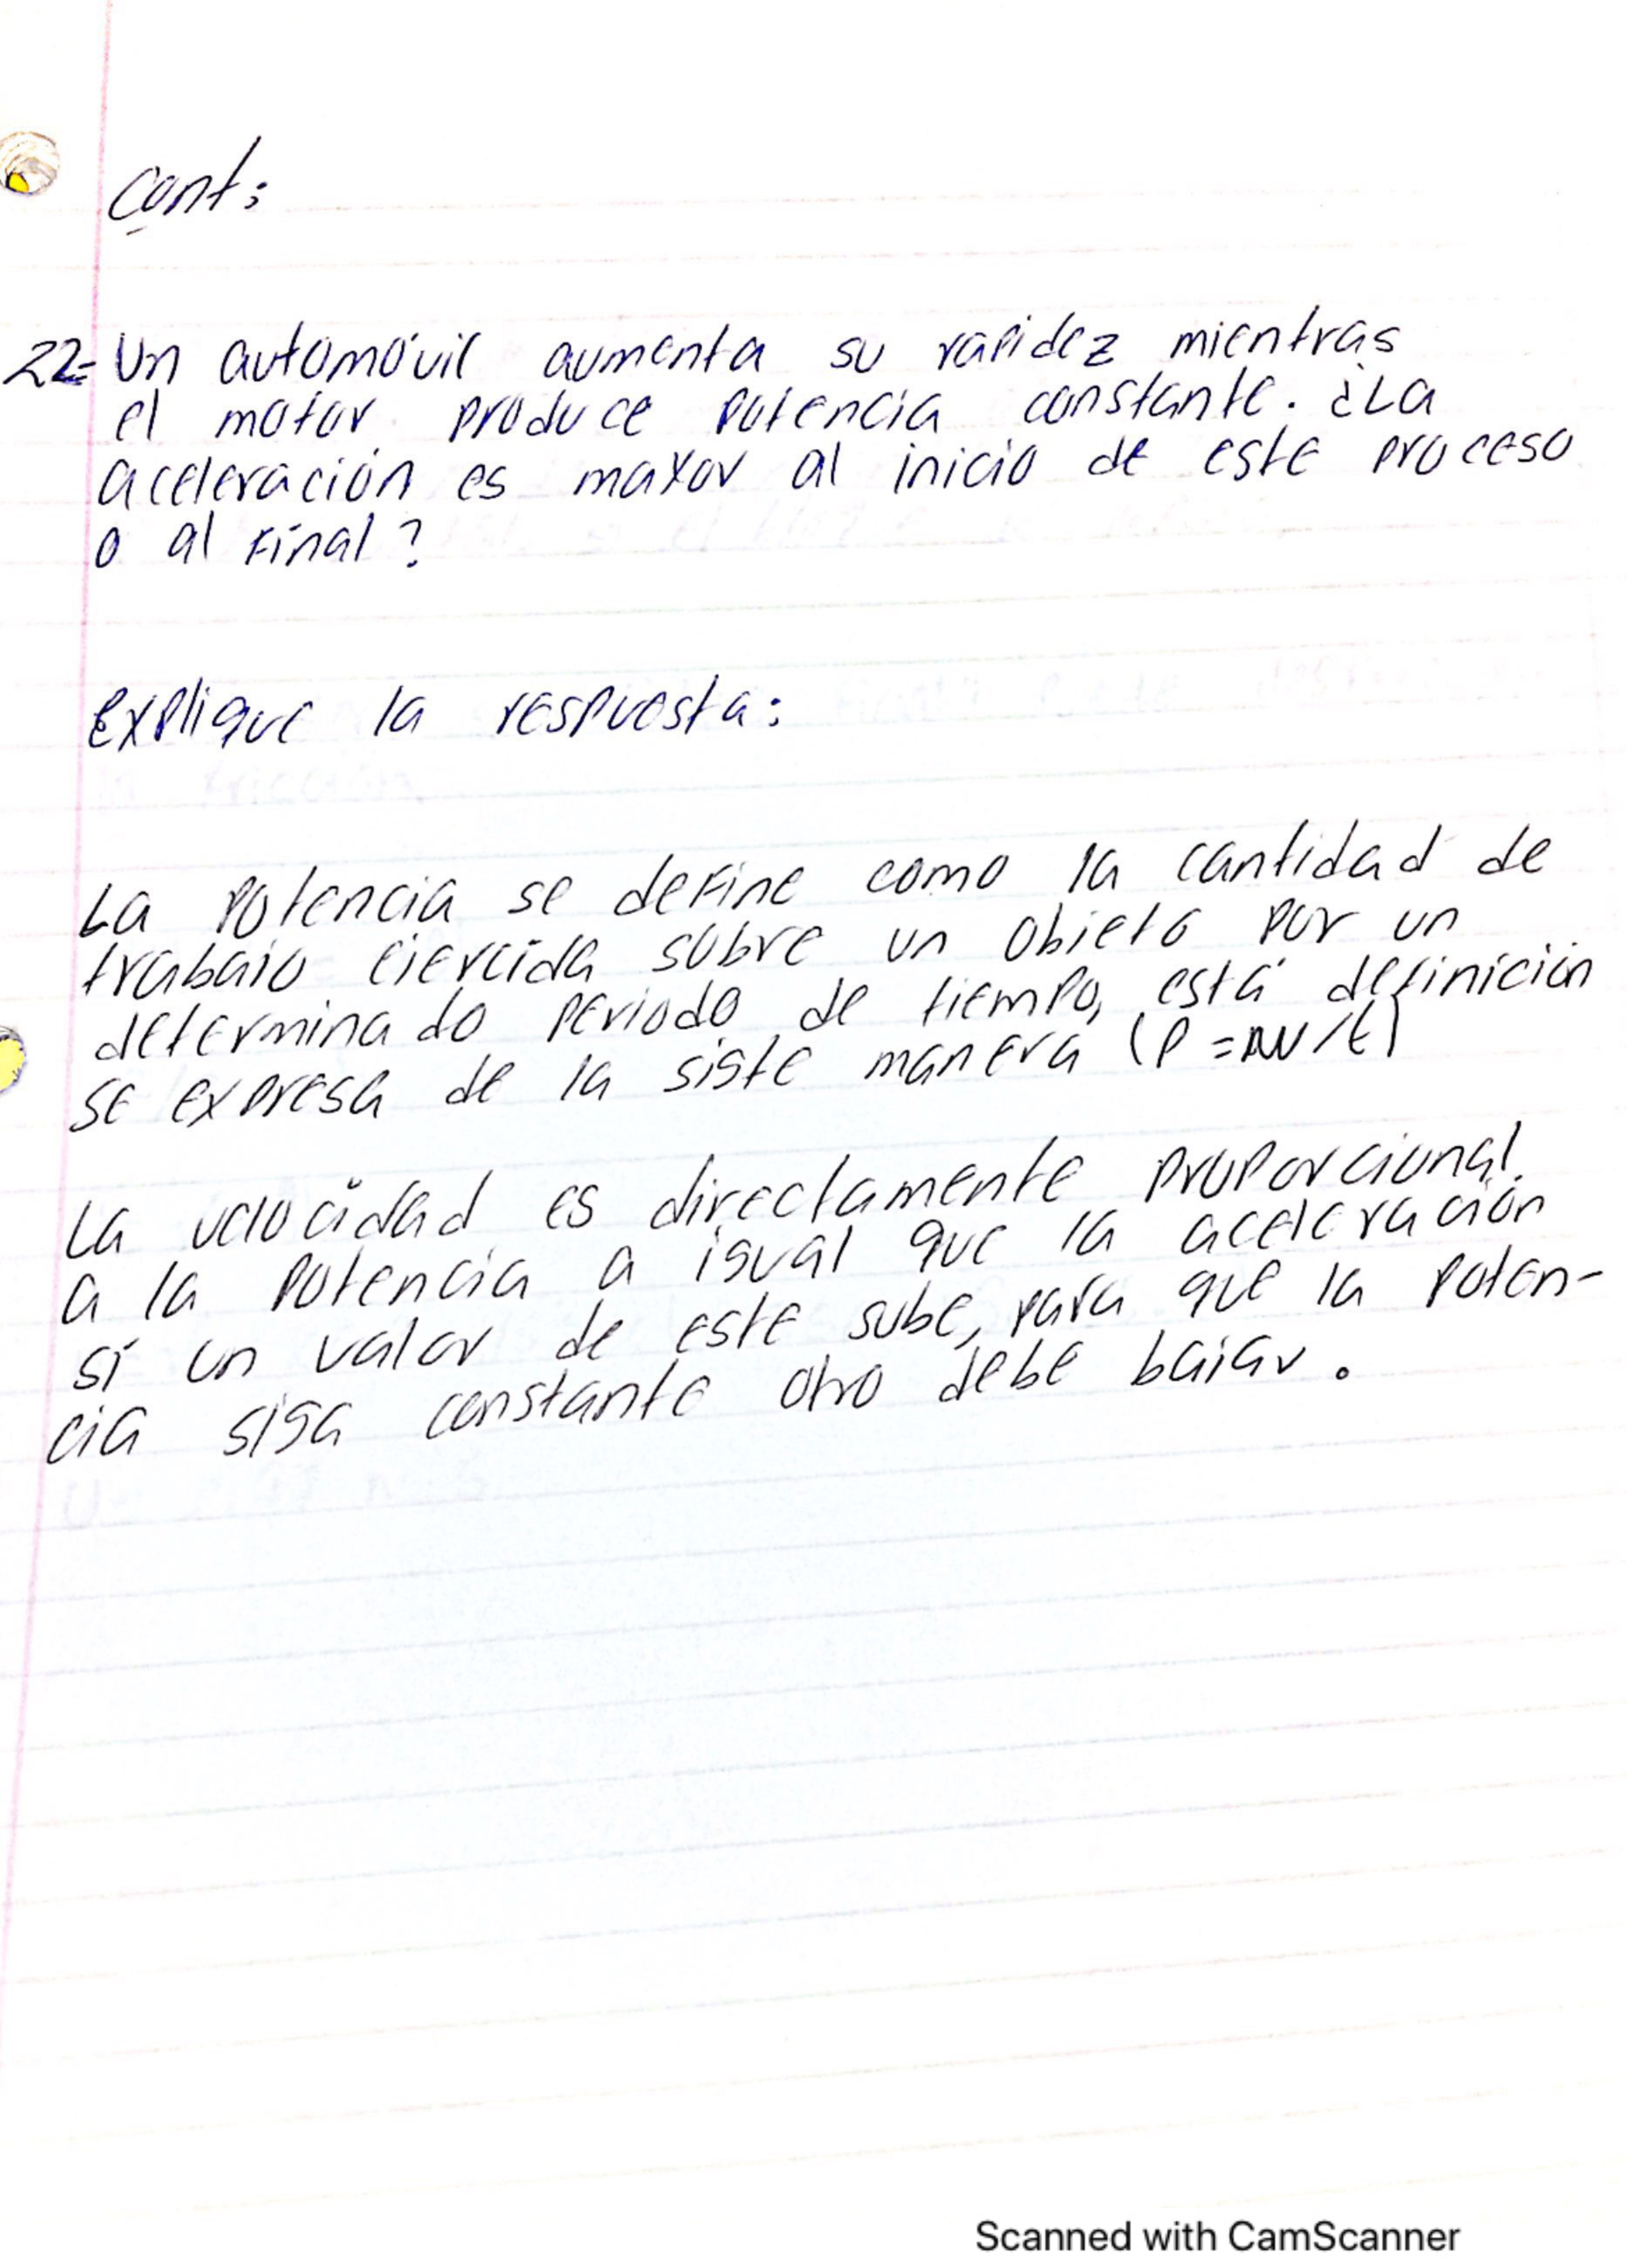 cont:
22- Un automóvil aumenta su rapidez mientras
el motor produce potencia constante. ¿La
aceleración es mayor al inicio de este proceso
o al final?
explique la respuesta:
La potencia se define como la cantidad de
trabajo ejercida sobre un objeto por un
determinado periodo de tiempo, está definición
se expresa de la siste manera (P = ΔW/t)
La velocidad es directamente proporcional
a la potencia a igual que la aceleración
sí un valor de este sube, para que la poten-
cia siga constante otro debe bajar.
Scanned with CamScanner